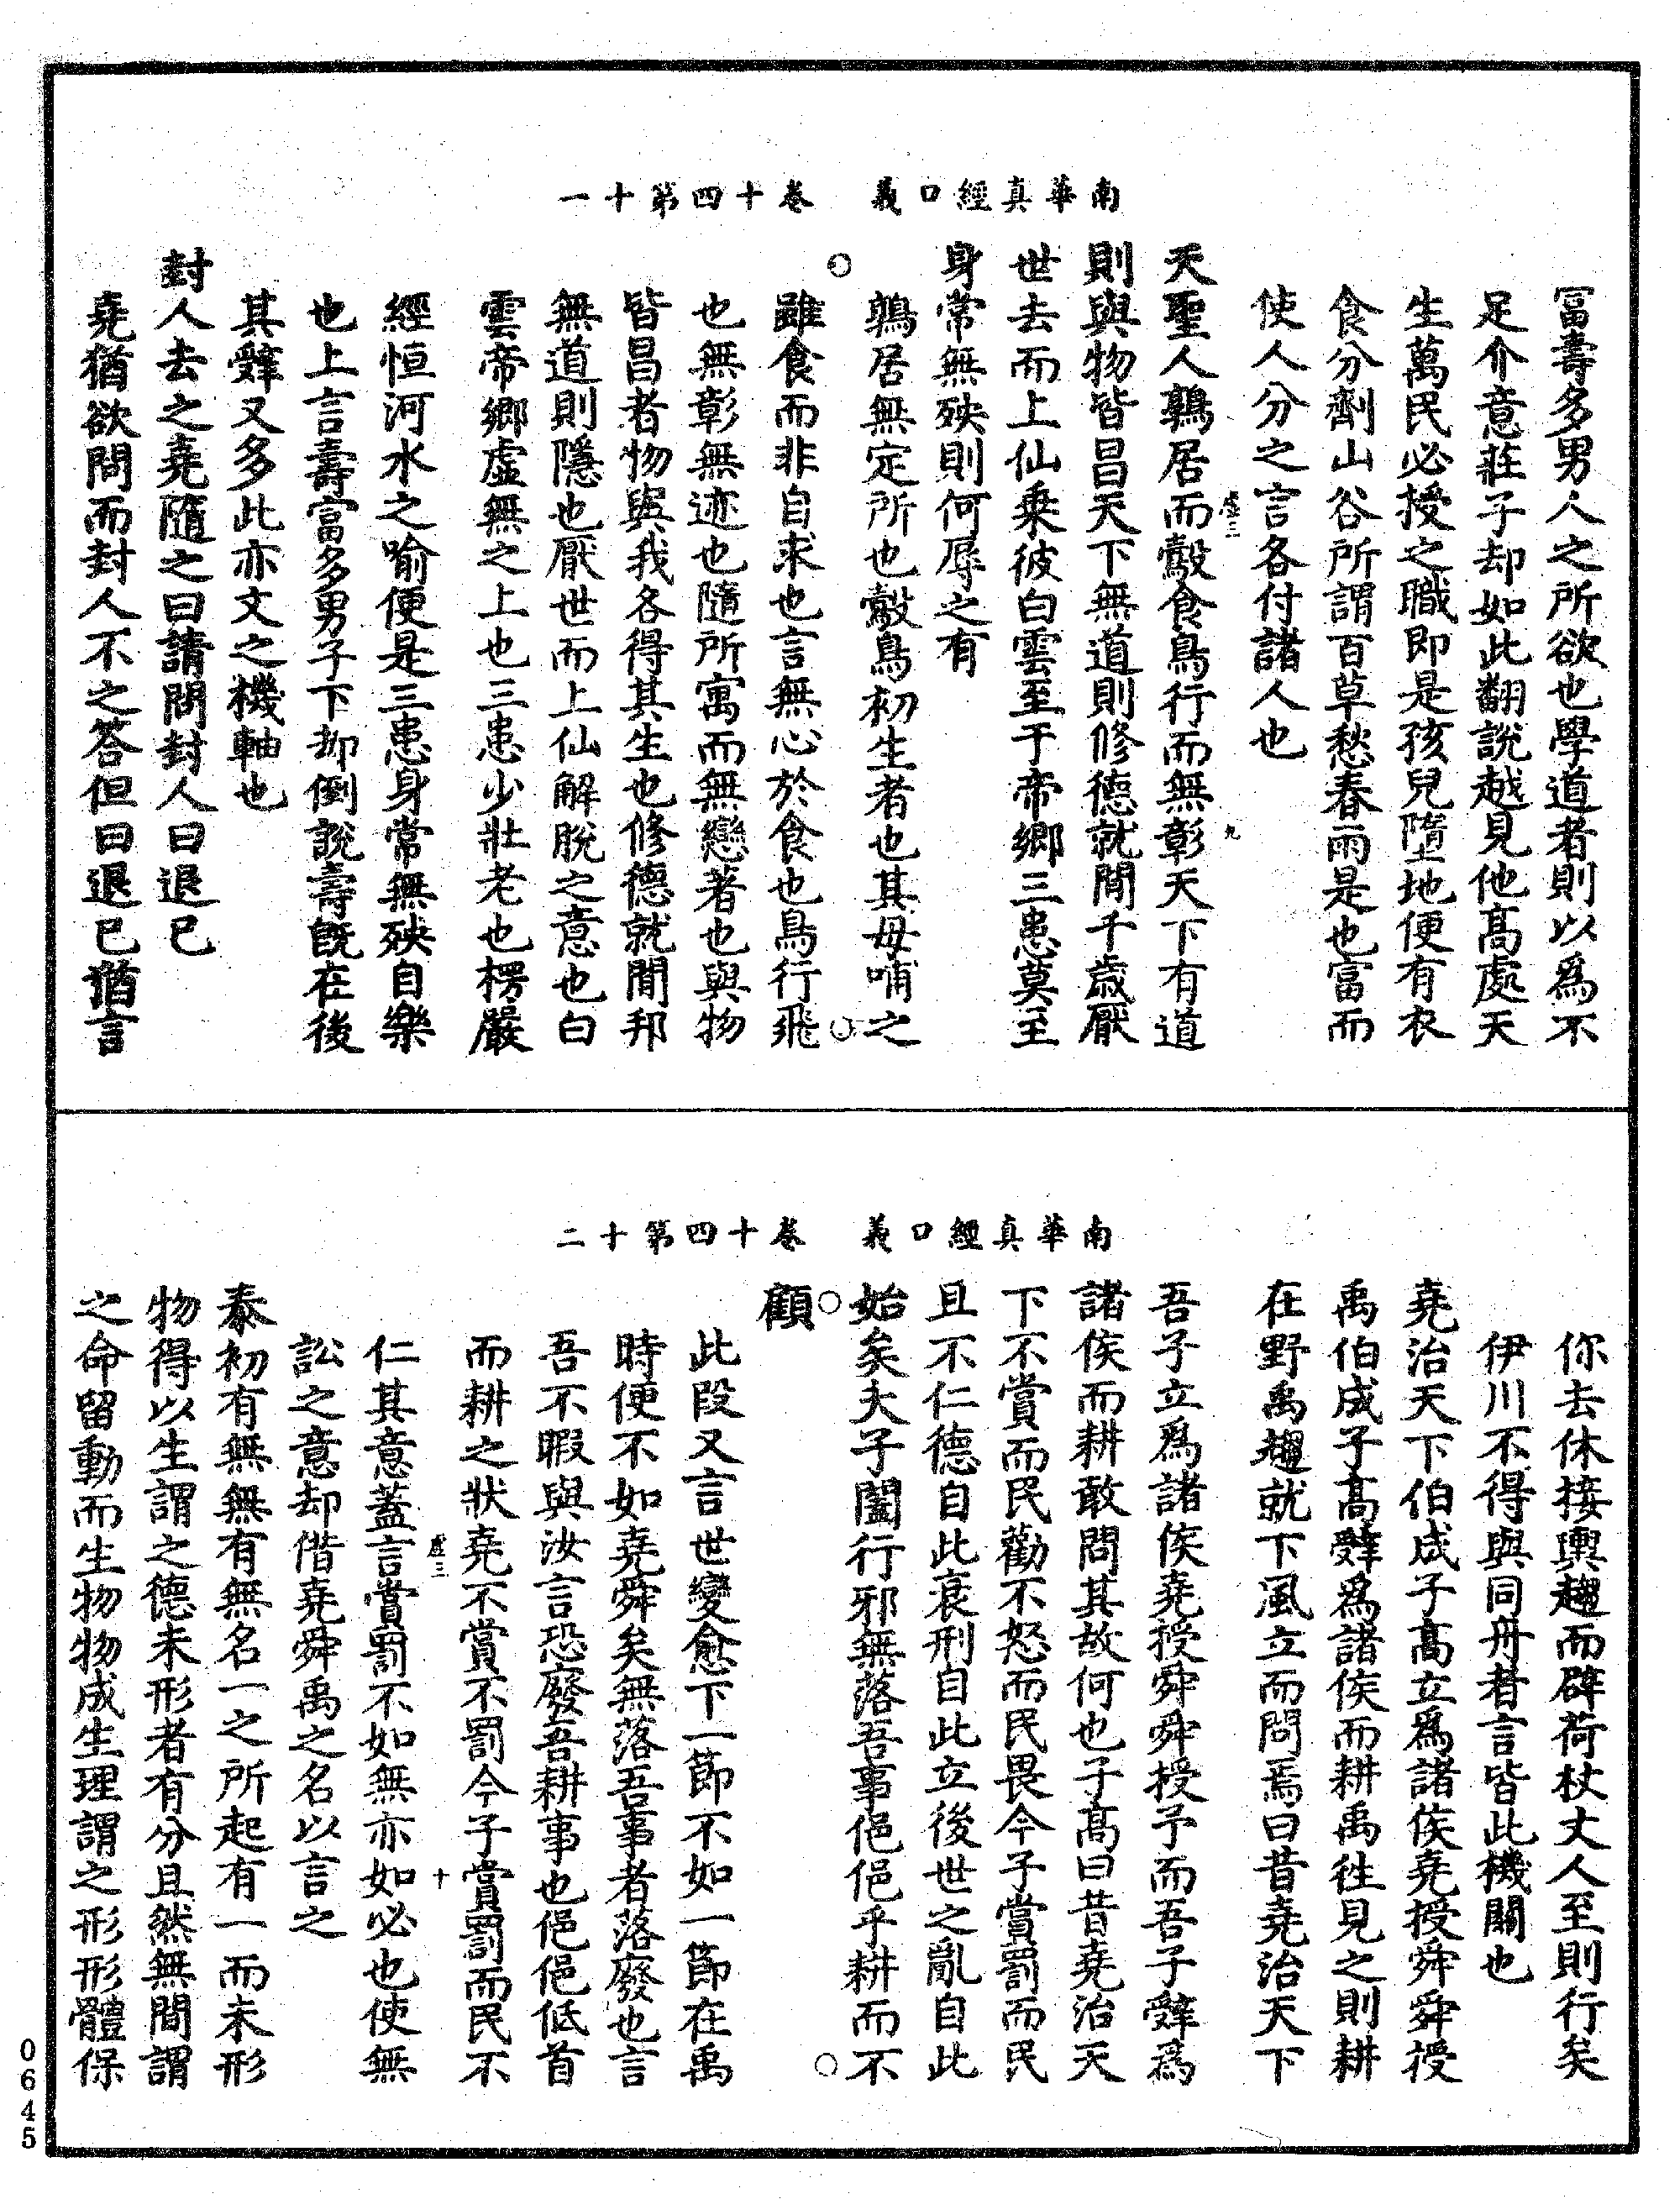 南華真經口義　卷十四第十一
富壽多男人之所欲也學道者則以為不
足介意莊子却如此翻說越見他高處天
生萬民必授之職即是孩兒墮地便有衣
食分劑山谷所謂百草愁春雨是也富而
使人分之言各付諸人也
虛三　九
夫聖人鶉居而鷇食鳥行而無彰天下有道
則與物皆昌天下無道則修德就閒千歲厭
世去而上仙乗彼白雲至于帝鄉三患莫至
身常無殃則何辱之有
鶉居無定所也鷇鳥初生者也其母哺之
雖食而非自求也言無心於食也鳥行飛
也無彰無迹也隨所寓而無戀著也與物
皆昌者物與我各得其生也修德就閒邦
無道則隱也厭世而上仙解脫之意也白
雲帝鄉虛無之上也三患少壯老也楞嚴
經恒河水之喻便是三患身常無殃自樂
也上言壽富多男子下却倒說壽既在後
其辤又多此亦文之機軸也
封人去之堯隨之曰請問封人曰退已
堯猶欲問而封人不之答但曰退已猶言
南華真經口義　卷十四第十二
你去休接輿趨而辟荷杖丈人至則行矣
伊川不得與同舟者言皆此機關也
堯治天下伯成子高立為諸侯堯授舜舜授
禹伯成子高辤為諸侯而耕禹徃見之則耕
在野禹趨就下風立而問焉曰昔堯治天下
吾子立為諸侯堯授舜舜授予而吾子辤為
諸侯而耕敢問其故何也子高曰昔堯治天
下不賞而民勸不怒而民畏今子賞罰而民
且不仁德自此衰刑自此立後世之亂自此
始矣夫子闔行邪無落吾事俋俋乎耕而不
顧
此段又言世變愈下一節不如一節在禹
時便不如堯舜矣無落吾事者落廢也言
吾不暇與汝言恐廢吾耕事也俋俋低首
而耕之狀堯不賞不罰今子賞罰而民不
虛三　十
仁其意蓋言賞罰不如無亦如必也使無
訟之意却借堯舜禹之名以言之
泰初有無無有無名一之所起有一而未形
物得以生謂之德未形者有分且然無間謂
之命留動而生物物成生理謂之形形體保
0645